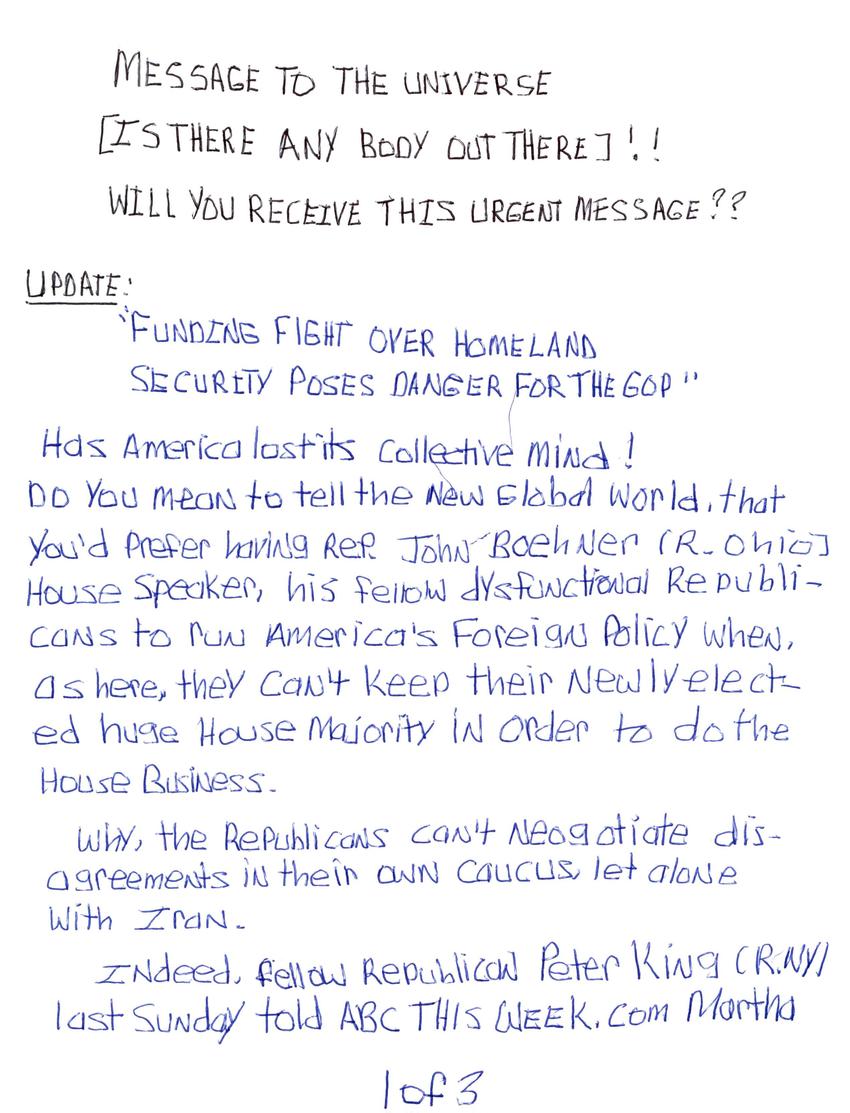 MESSAGE TO THE UNIVERSE
[IS THERE ANY BODY OUT THERE] !!
WILL YOU RECEIVE THIS URGENT MESSAGE??
UPDATE:
"FUNDING FIGHT OVER HOMELAND
SECURITY POSES DANGER FOR THE GOP"
Has America lost its collective mind!
Do You mean to tell the New Global World, that
You'd Prefer having Rep. John Boehner (R-Ohio]
House Speaker, his fellow dysfunctional Republi-
cans to run America's Foreign Policy when,
as here, they can't keep their newly elect-
ed huge House Majority in order to do the
House Business.
Why, the Republicans can't Neogotiate dis-
agreements in their own caucus, let alone
with Iran.
Indeed, fellow Republican Peter King (R.NY)
last Sunday told ABC THIS WEEK.com Martha
1 of 3